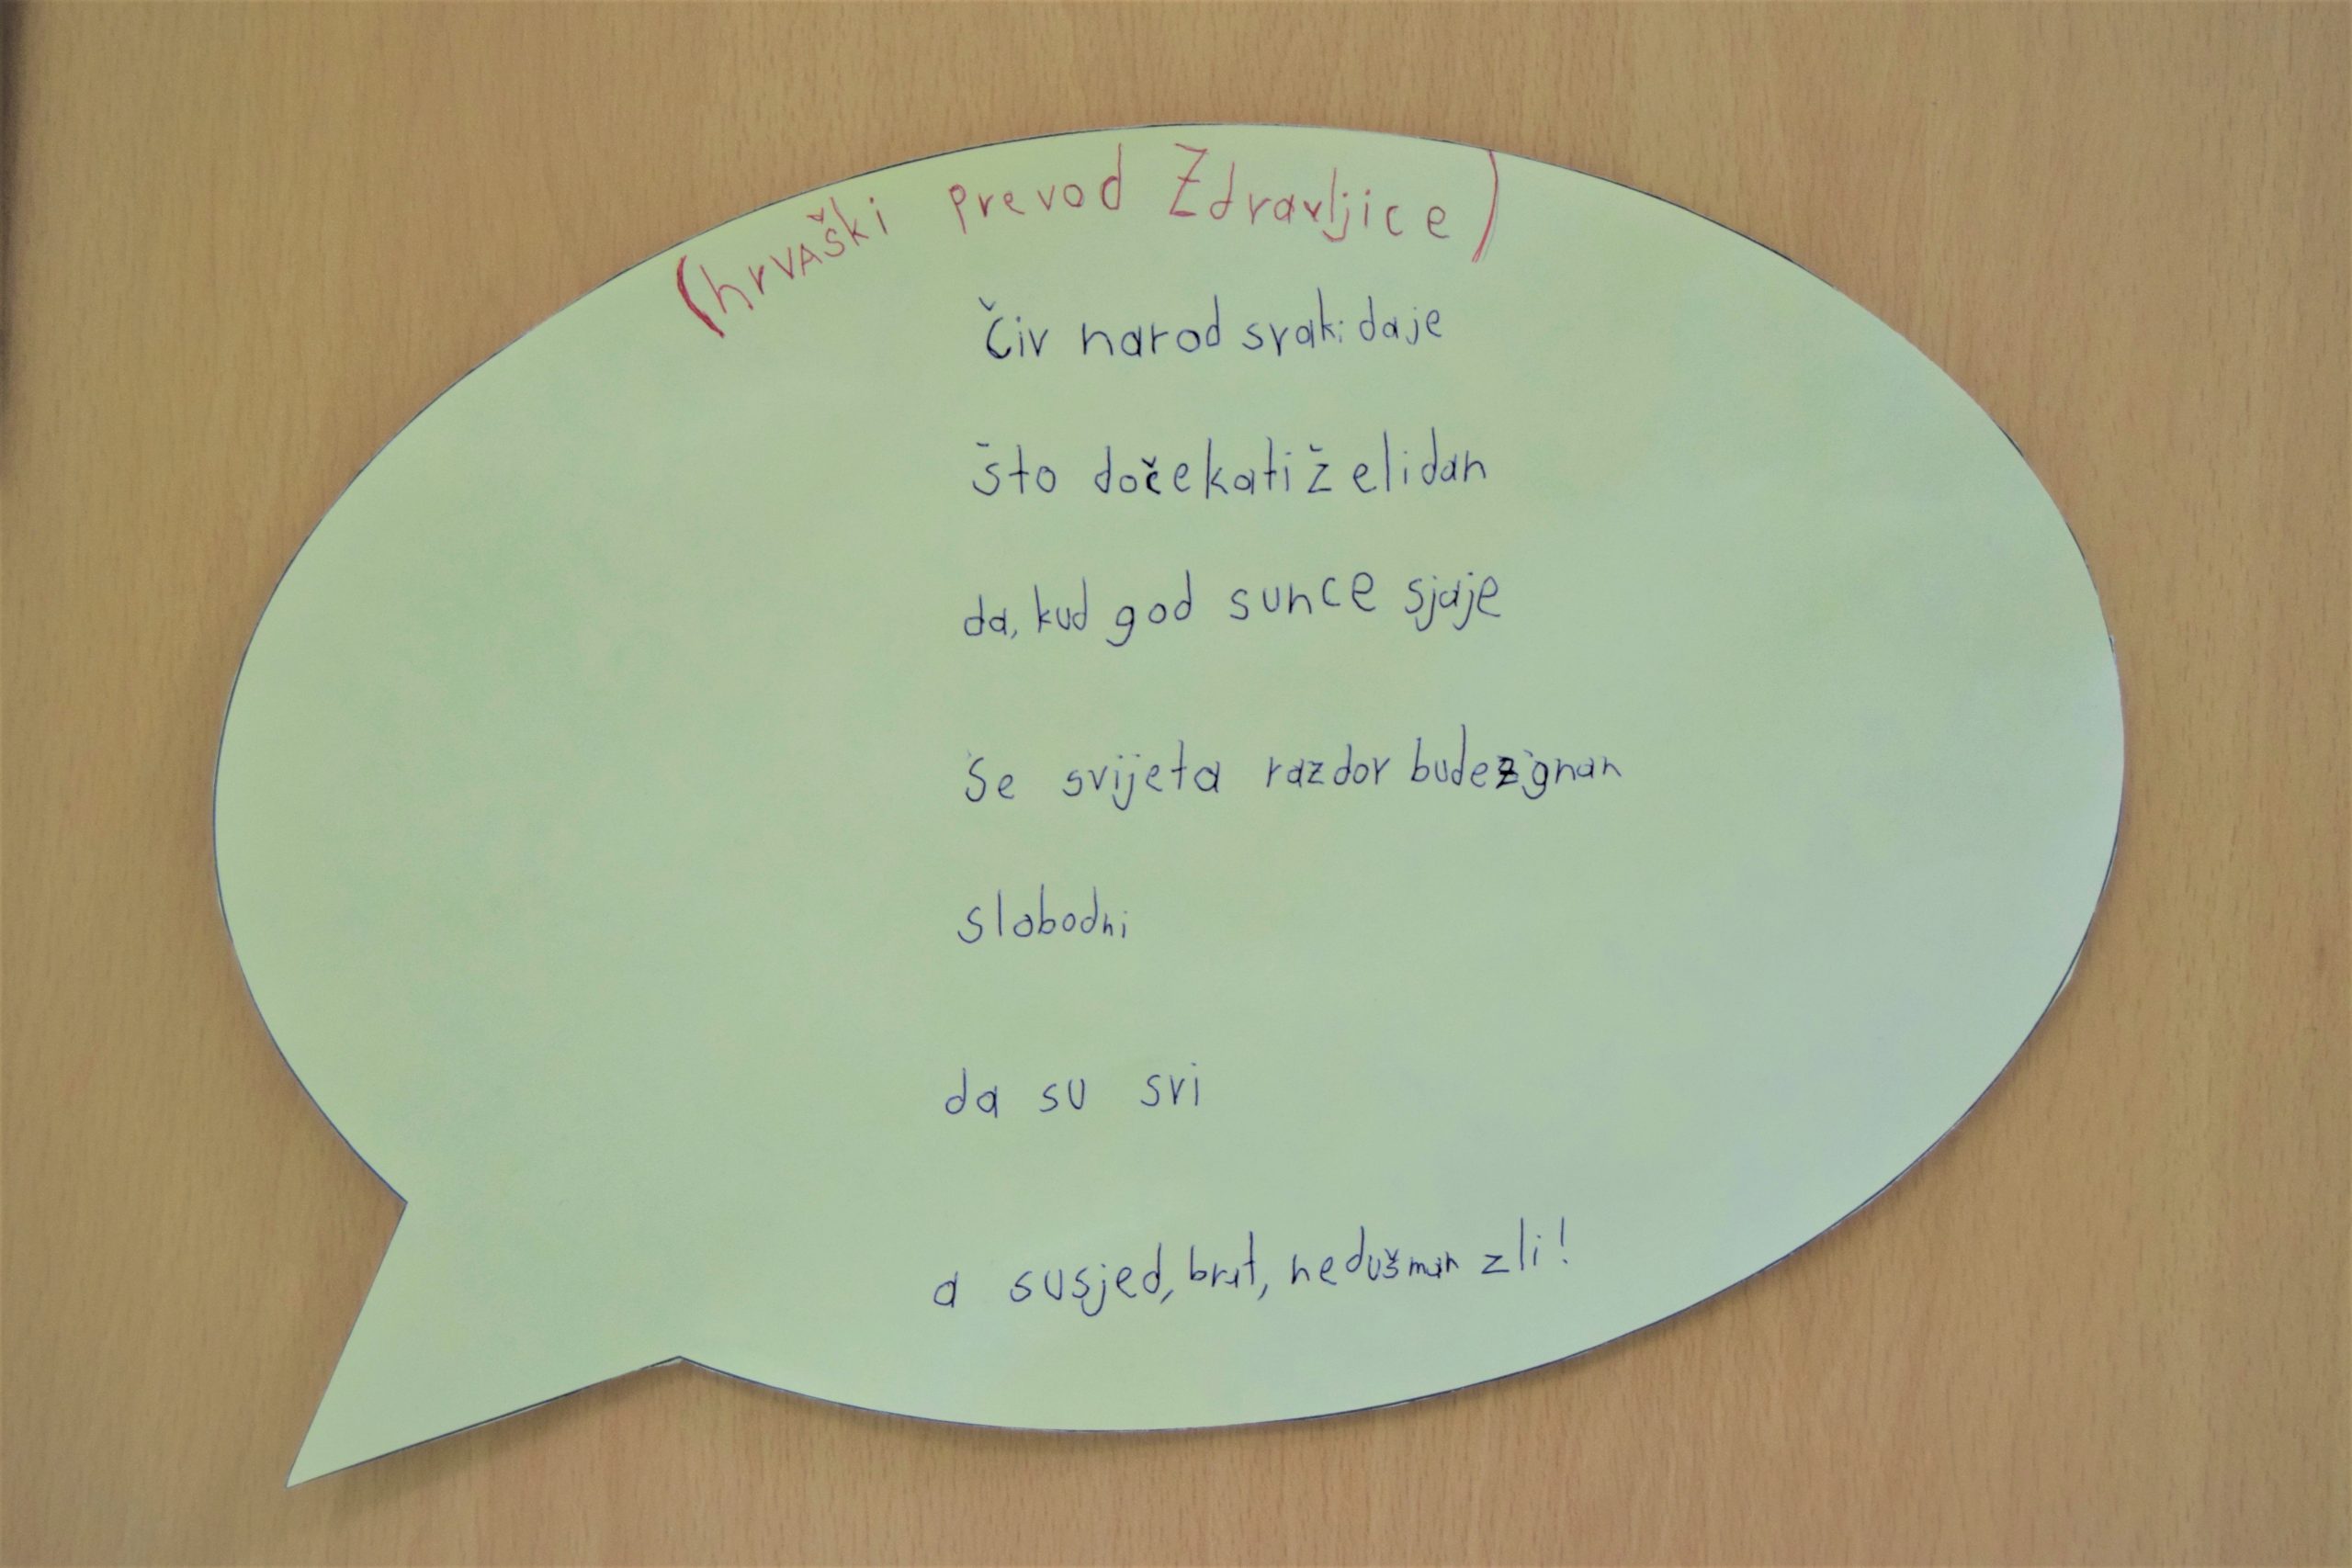 (hrvaški prevod Zdravljice)
Čiv narod svaki daje
što dočekati želi dan
da, kud god sunce sjaje
Se svijeta razdor bude zignan
slobodni
da su svi
a susjed, brat, nedušman zli!